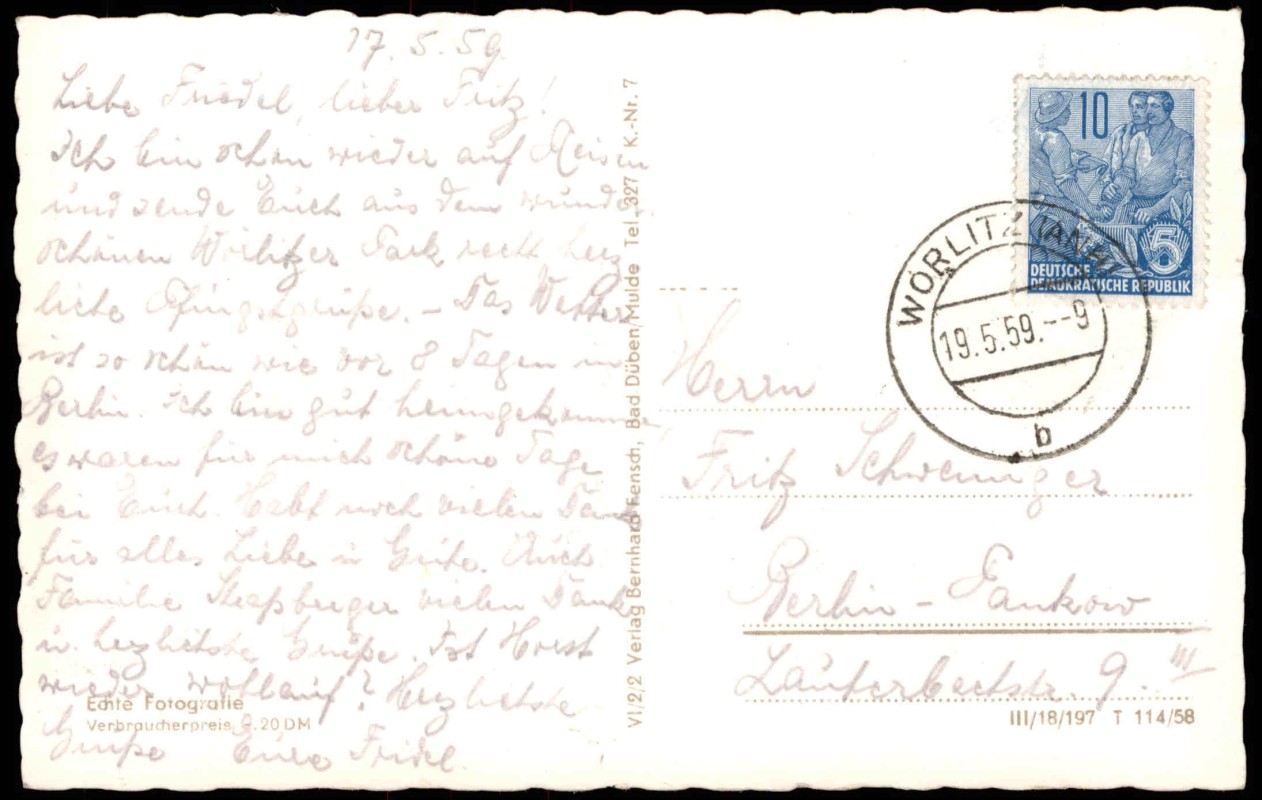 17.5.59
Liebe Friedel, lieber Fritz!
Ich bin schon wieder auf Reisen
und sende Euch aus dem wunder-
schönen Wörlitzer Park recht herz-
liche Pfingstgrüße. – Das Wetter
ist so schön wie vor 8 Tagen in
Berlin. Ich bin gut heimgekommen
es waren für mich schöne Tage
bei Euch. Habt noch vielen Dank
für alles Liebe u. Gute. Auch
Familie vielen Dank
u. herzlichste Grüße. Ist Horst
wieder wohlauf? Herzlichste
Grüße Eure Fridel.
Echte Fotografie
Verbraucherpreis -.20 DM
VI/2/2 Verlag Bernhard Fensch, Bad Düben/Mulde Tel. 327 K.-Nr. 7
10
5
DEUTSCHE
DEMOKRATISCHE REPUBLIK
WÖRLITZ (ANH)
19.5.59.--9
b
Herrn
Fritz Schweniger
Berlin - Pankow
9. III
III/18/197 T 114/58